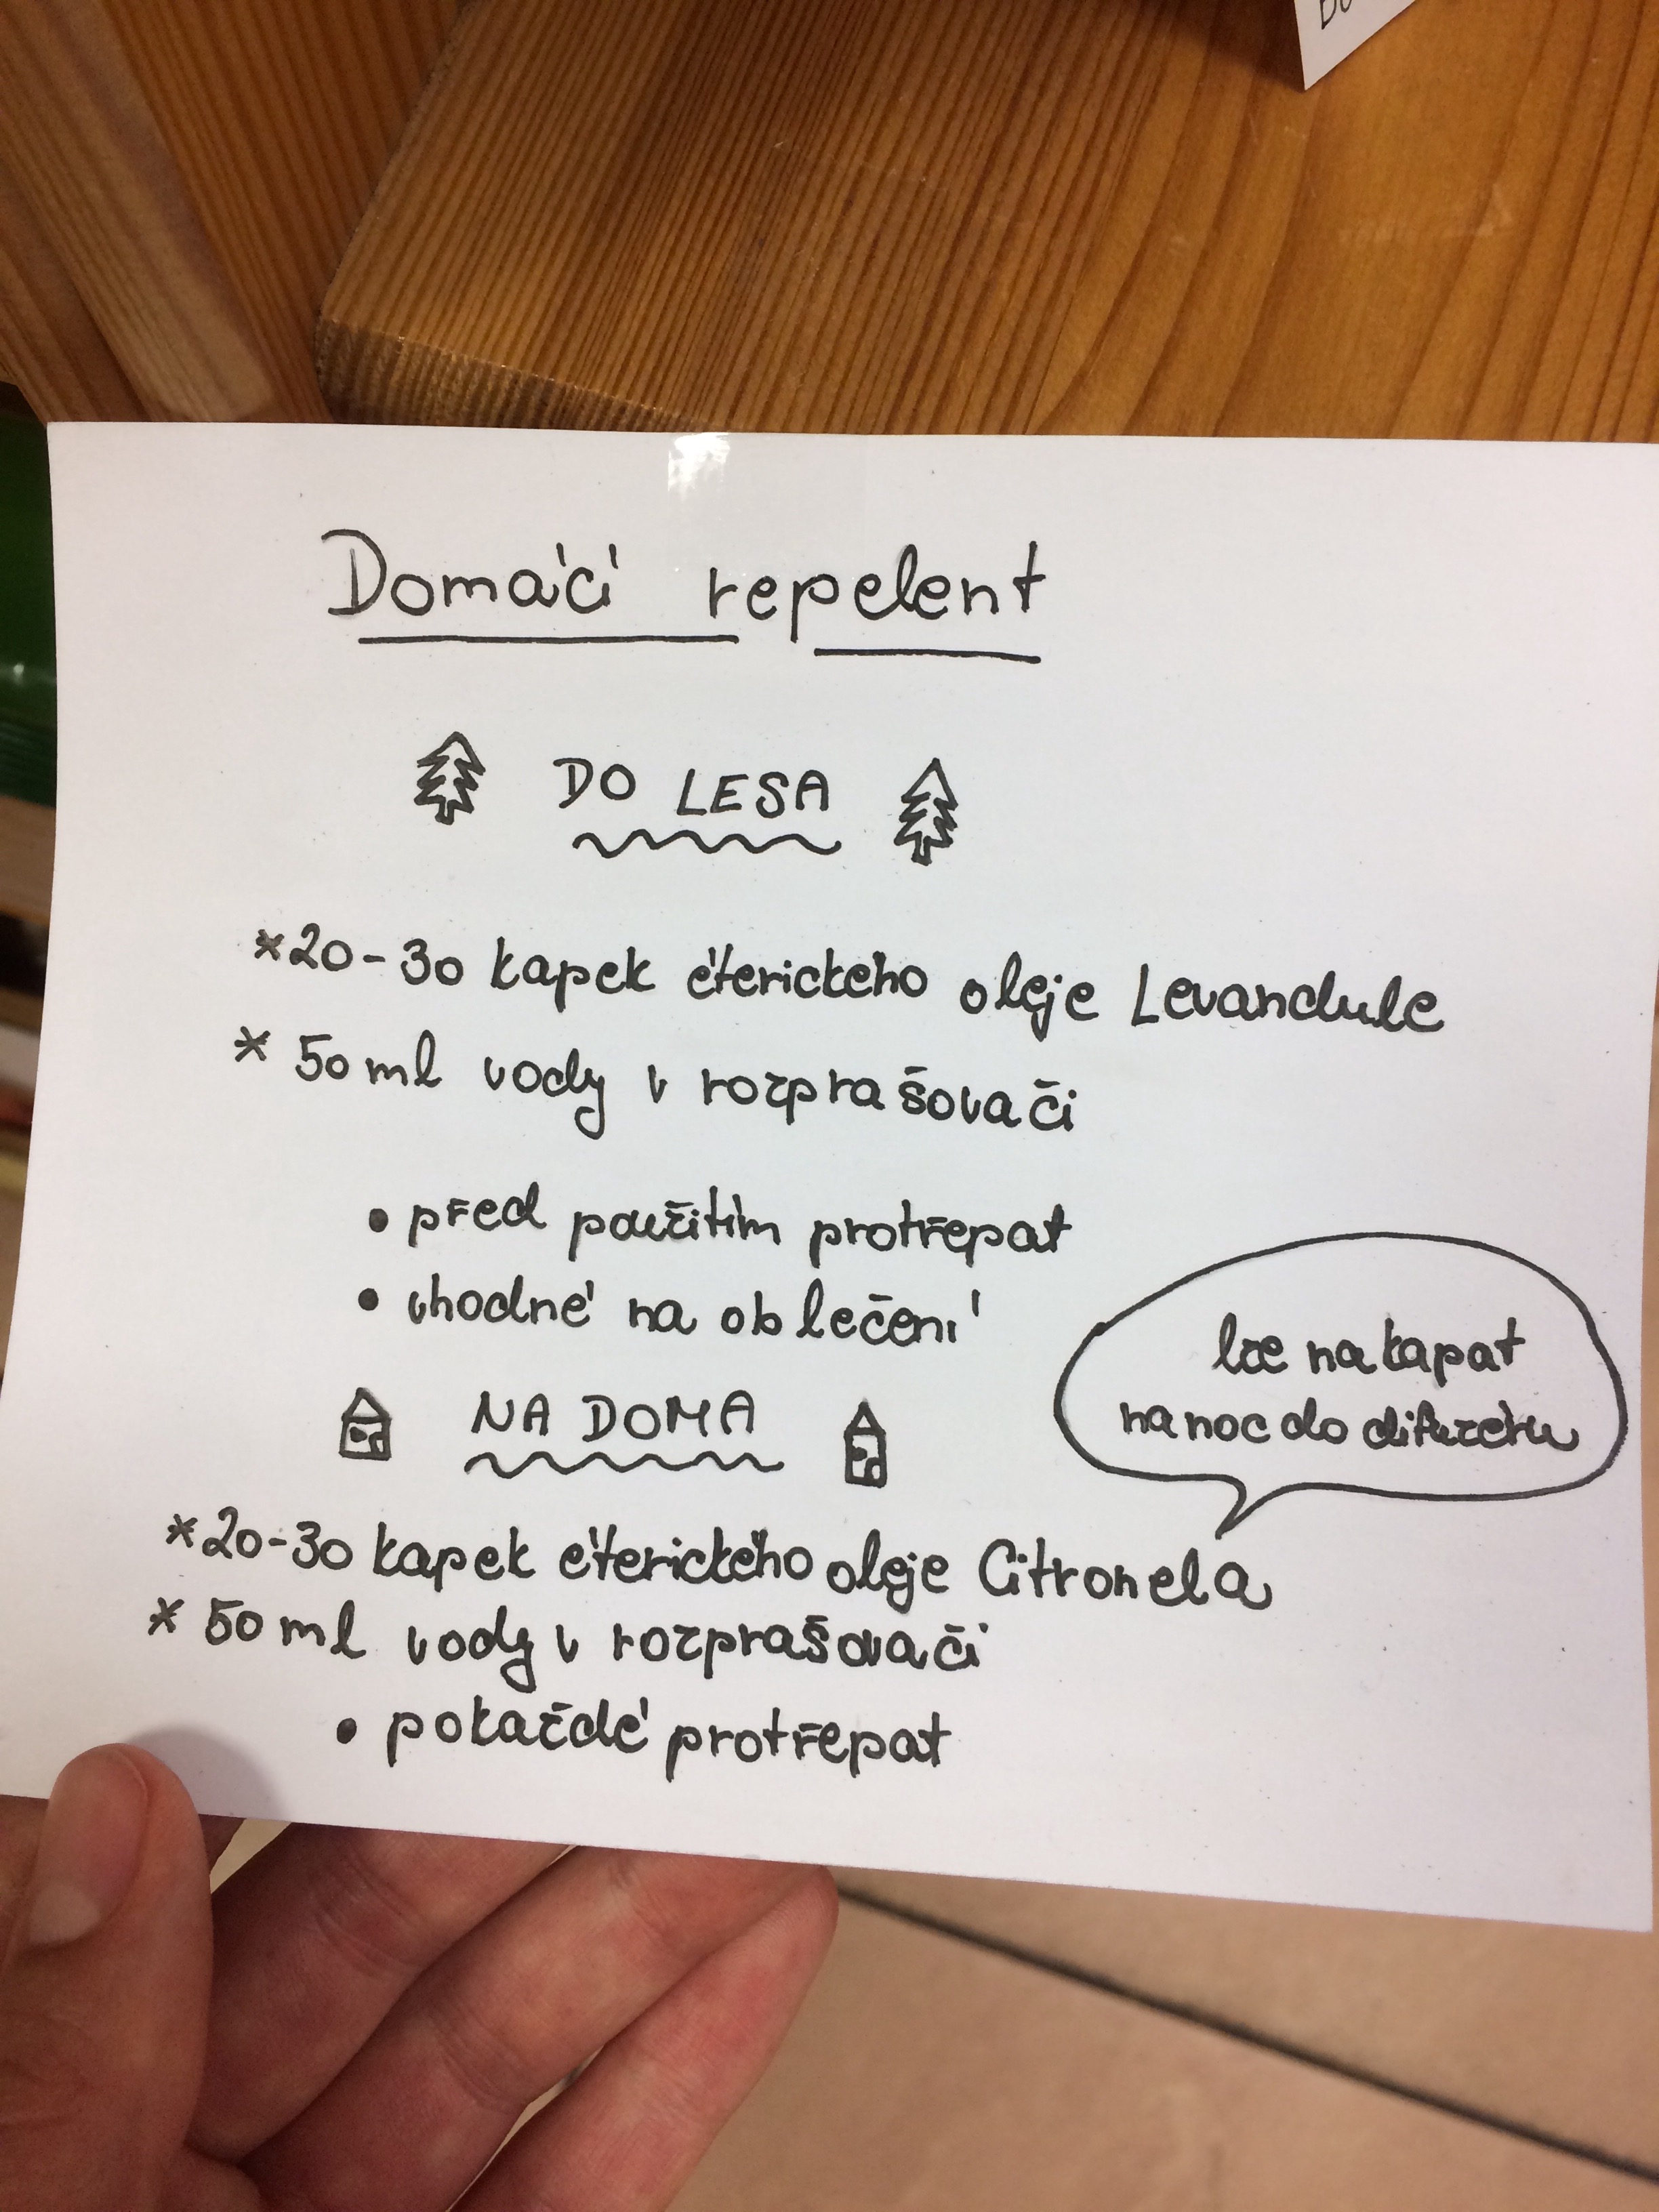 Do
Domácí repelent
DO LESA
*20-30 kapek éterického oleje Levandule
* 50 ml vody v rozprašovači
• před použitím protřepat
• vhodné na oblečení
lze nakapat
na noc do difuzéru
NA DOMA
*20-30 kapek éterického oleje Citronela
* 50 ml vody v rozprašovači
• pokaždé protřepat